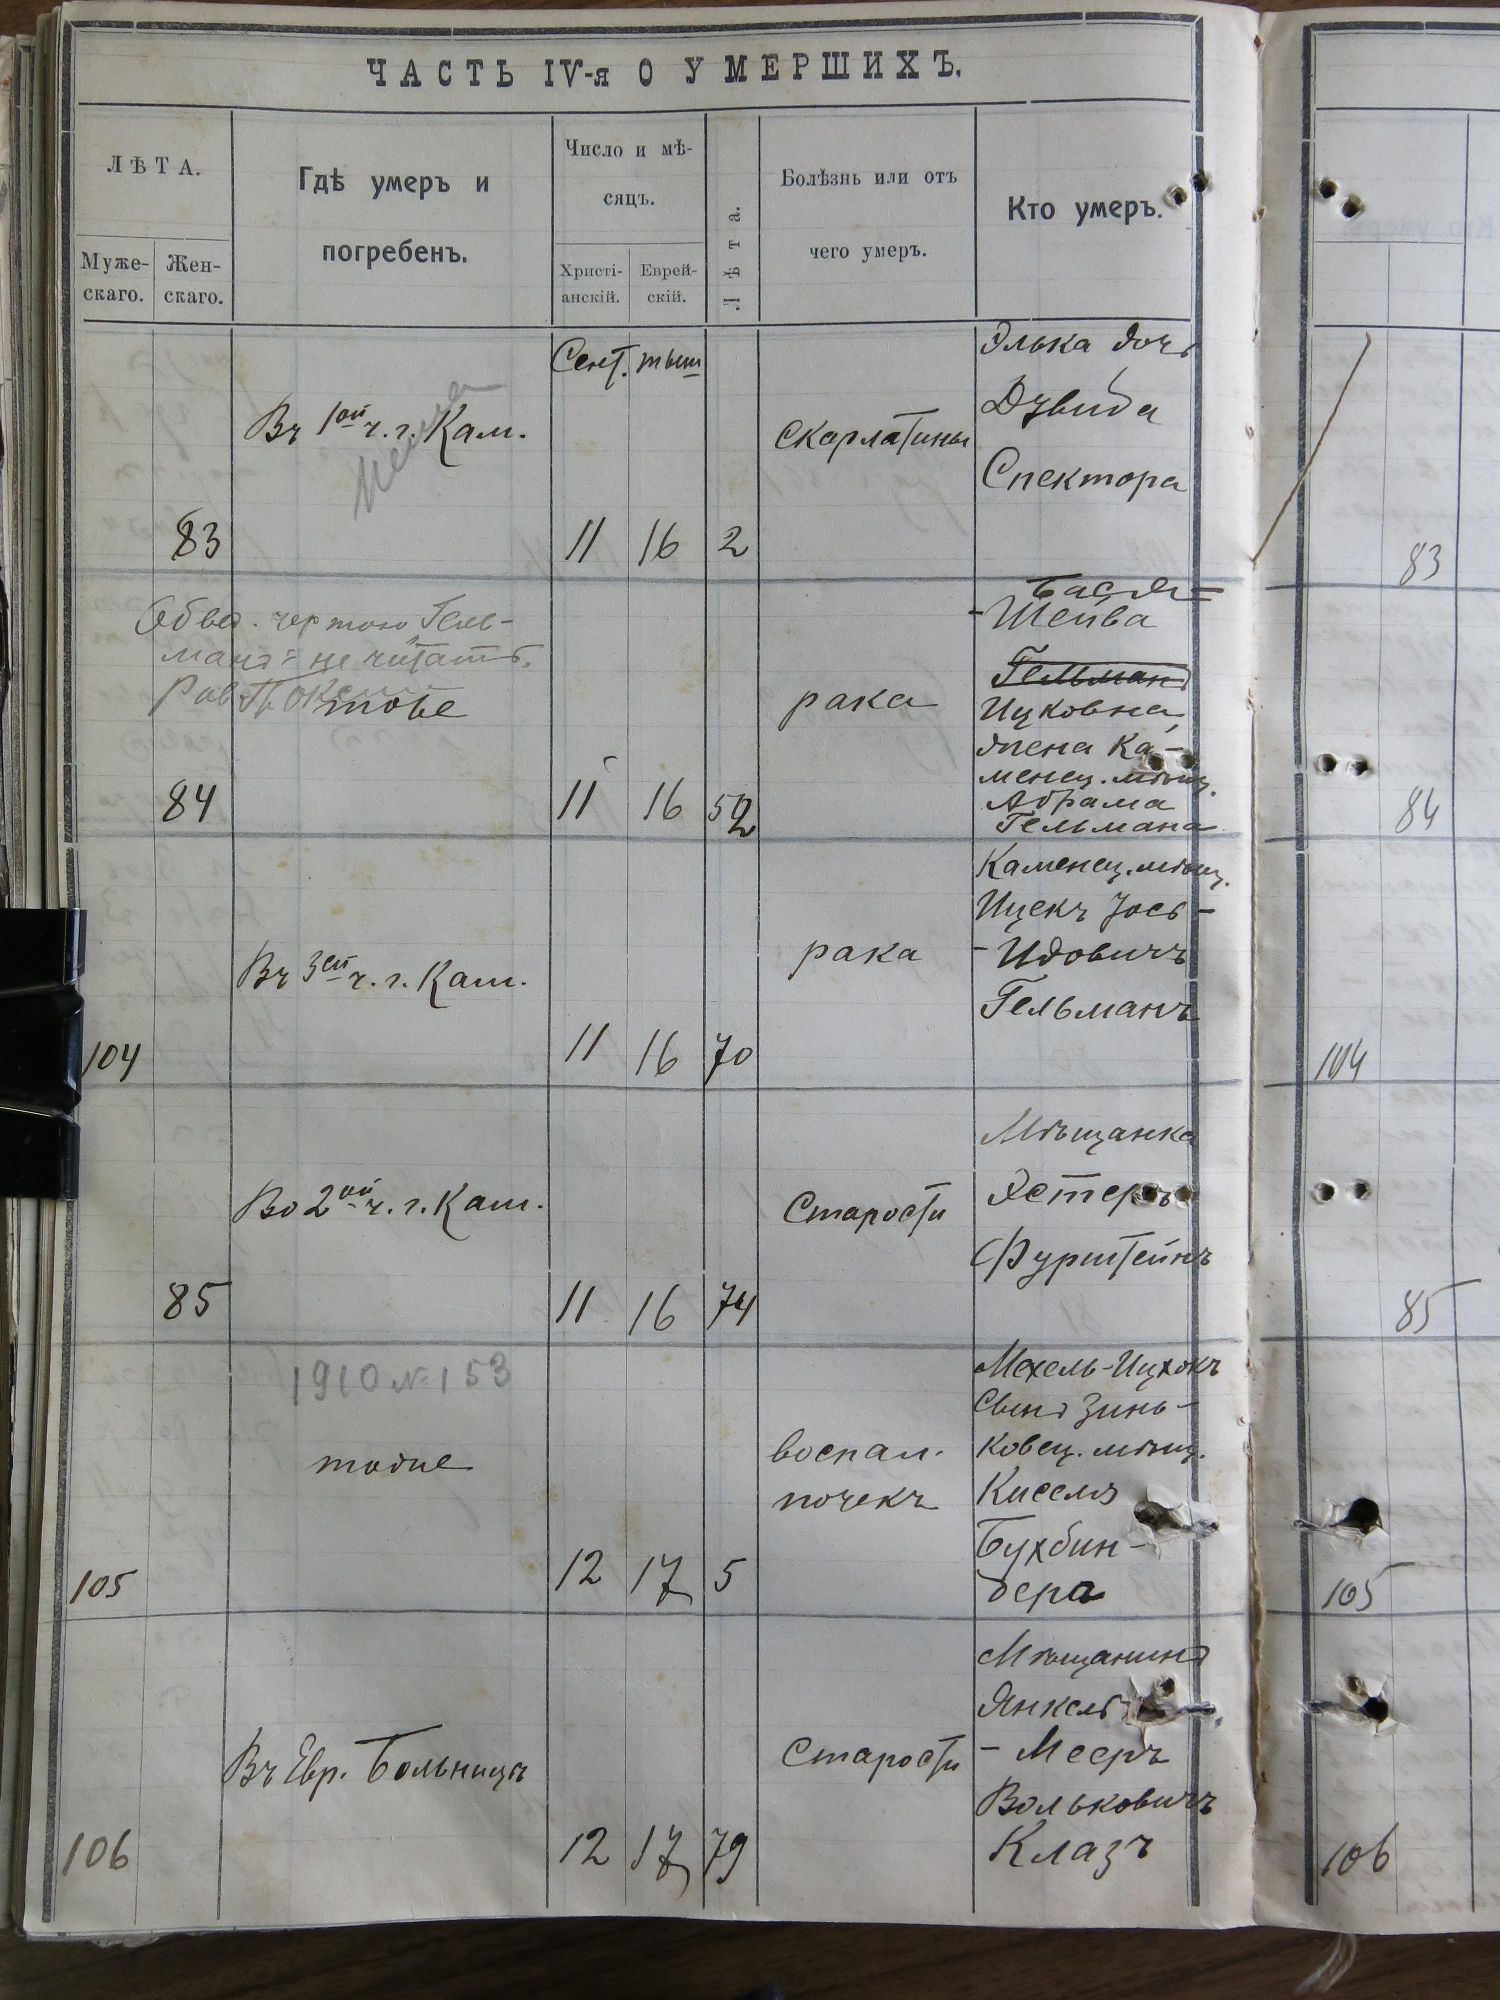 ЧАСТЬ IV-я О УМЕРШИХЪ.
ЛѢТА.
Муже-
скаго.
Жен-
скаго.
Гдѣ умеръ и
погребенъ.
Число и мѣ-
сяцъ.
Христі-
анскій.
Еврей-
скій.
Лѣта.
Болѣзнь или отъ
чего умеръ.
Кто умеръ.
Сент. тыш
83
Въ 1ой ч. г. Кам.
11 16 2
скарлатины
Элька дочь
Дувида
Спектора
83
Обвед. чертою Гель-
манъ = не читать.
Рав
тоже
84
11 16 52
рака
Бася-
-Шейва
Гельманъ
Ицковна,
жена Ка-
менец. мѣщ.
Абрама
Гельмана
84
104
Въ 3ей ч. г. Кам.
11 16 70
рака
Каменец. мѣщ.
Ицекъ Йось-
-Идовичъ
Гельманъ
104
85
Во 2ой ч. г. Кам.
11 16 74
Старости
Мѣщанка
Эстеръ
Фурштейнъ
85
1910 № 153
105
тоже
12 17 5
воспал.
почекъ
Мехель-Ицхокъ
сынъ Зинь-
ковец. мѣщ.
Киселя
Бухбин-
дера
105
106
Въ Евр. Больницѣ
12 17 79
Старости
Мѣщанинъ
Янкель
- Мееръ
Вольковичъ
Клазъ
106